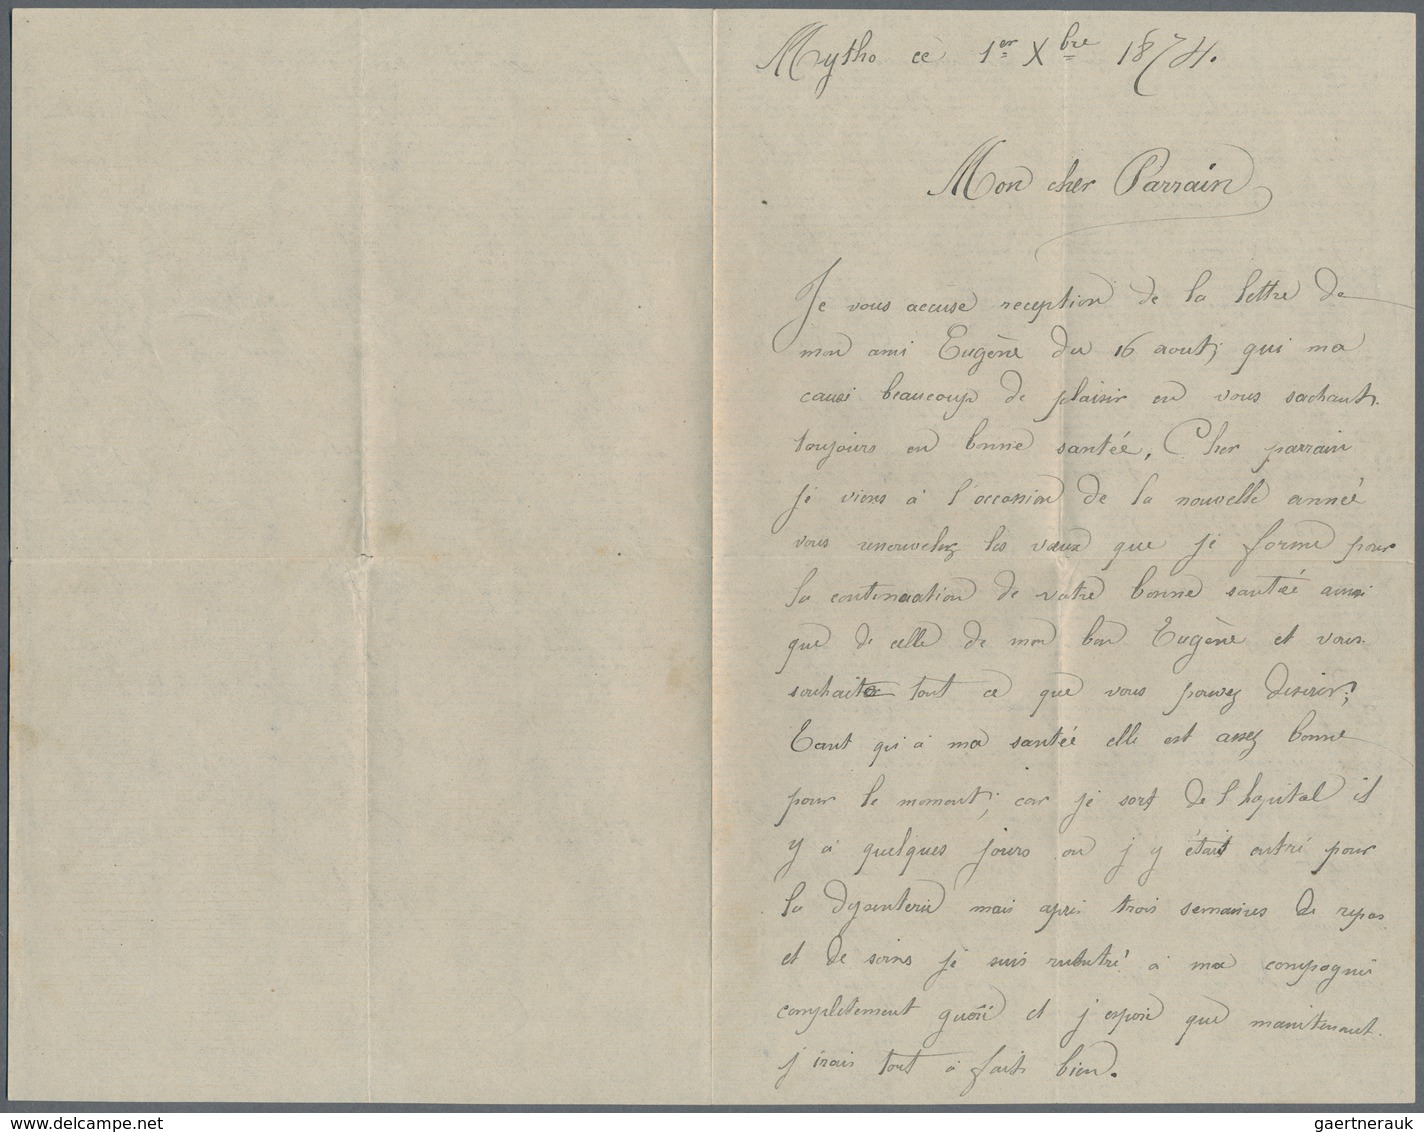 Mytho ce 1er Xbre 1874.
Mon cher Parrain
Je vous accuse reception de la lettre de
mon ami Eugène du 16 aout; qui ma
causé beaucoup de plaisir en vous sachant
toujours en bonne santée, Cher parrain
je viens à l'occasion de la nouvelle année
vous renouvelez les vœux que je forme pour
la continuation de votre bonne santée ainsi
que de celle de mon bon Eugène et vous
souhaite tout ce que vous pouvez desirer;
Tant qui à ma santée elle est assez bonne
pour le moment; car je sort de l hopital il
y à quelques jours ou j y était entré pour
la dysenterie mais après trois semaines de repos
et de soins je suis rentré à ma compagnie
completement guérit et j'espère que maintenant
j irais tout à fait bien.
csp.delcampe.net
gaertnerauk